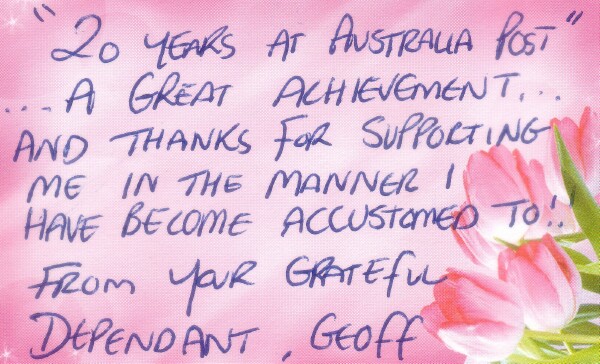 "20 YEARS AT AUSTRALIA POST"
...A GREAT ACHIEVEMENT...
AND THANKS FOR SUPPORTING
ME IN THE MANNER I
HAVE BECOME ACCUSTOMED TO!!
FROM YOUR GRATEFUL
DEPENDANT, GEOFF